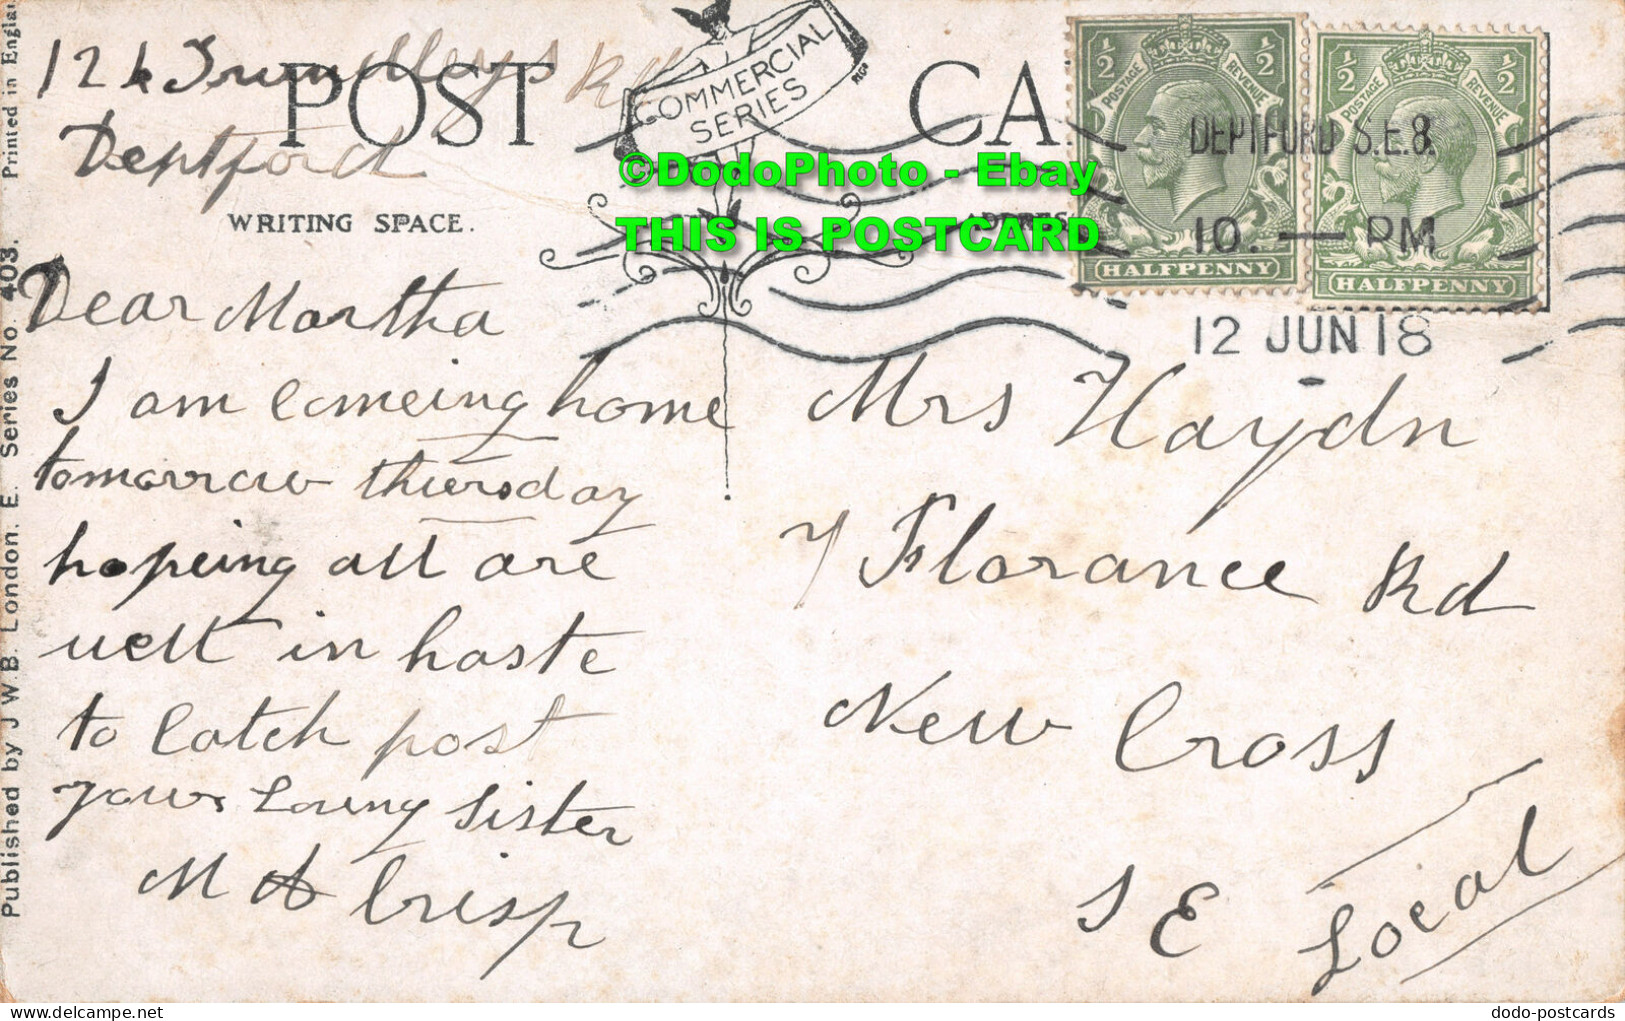 Printed in Englan
Published by J.W.B. London. E. Series No. 403.
POST CA
COMMERCIAL
SERIES
WRITING SPACE.
ADDRES
©DodoPhoto - Ebay
THIS IS POSTCARD
½ ½
POSTAGE REVENUE
HALFPENNY
½ ½
POSTAGE REVENUE
HALFPENNY
DEPTFORD S.E.8.
10. — PM
12 JUN 18
Trundleys Rd
Deptford
Dear Martha
I am comeing home
tomorrow thursday
hopeing all are
well in haste
to catch post
your Loving Sister
M A Crisp
Mrs Haydn
7 Florance Rd
New Cross
S E
Local
dodo-postcards
delcampe.net